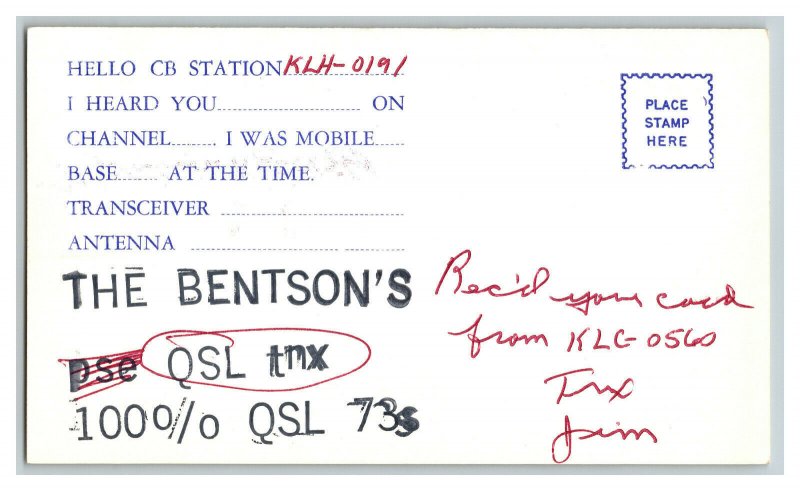 HELLO CB STATION KLH-0191
I HEARD YOU ON
CHANNEL I WAS MOBILE
BASE AT THE TIME.
TRANSCEIVER
ANTENNA
THE BENTSON'S
pse QSL tnx
100% QSL 73s
PLACE
STAMP
HERE
Rec'd your card
from KLC-0560
Tnx
Jim